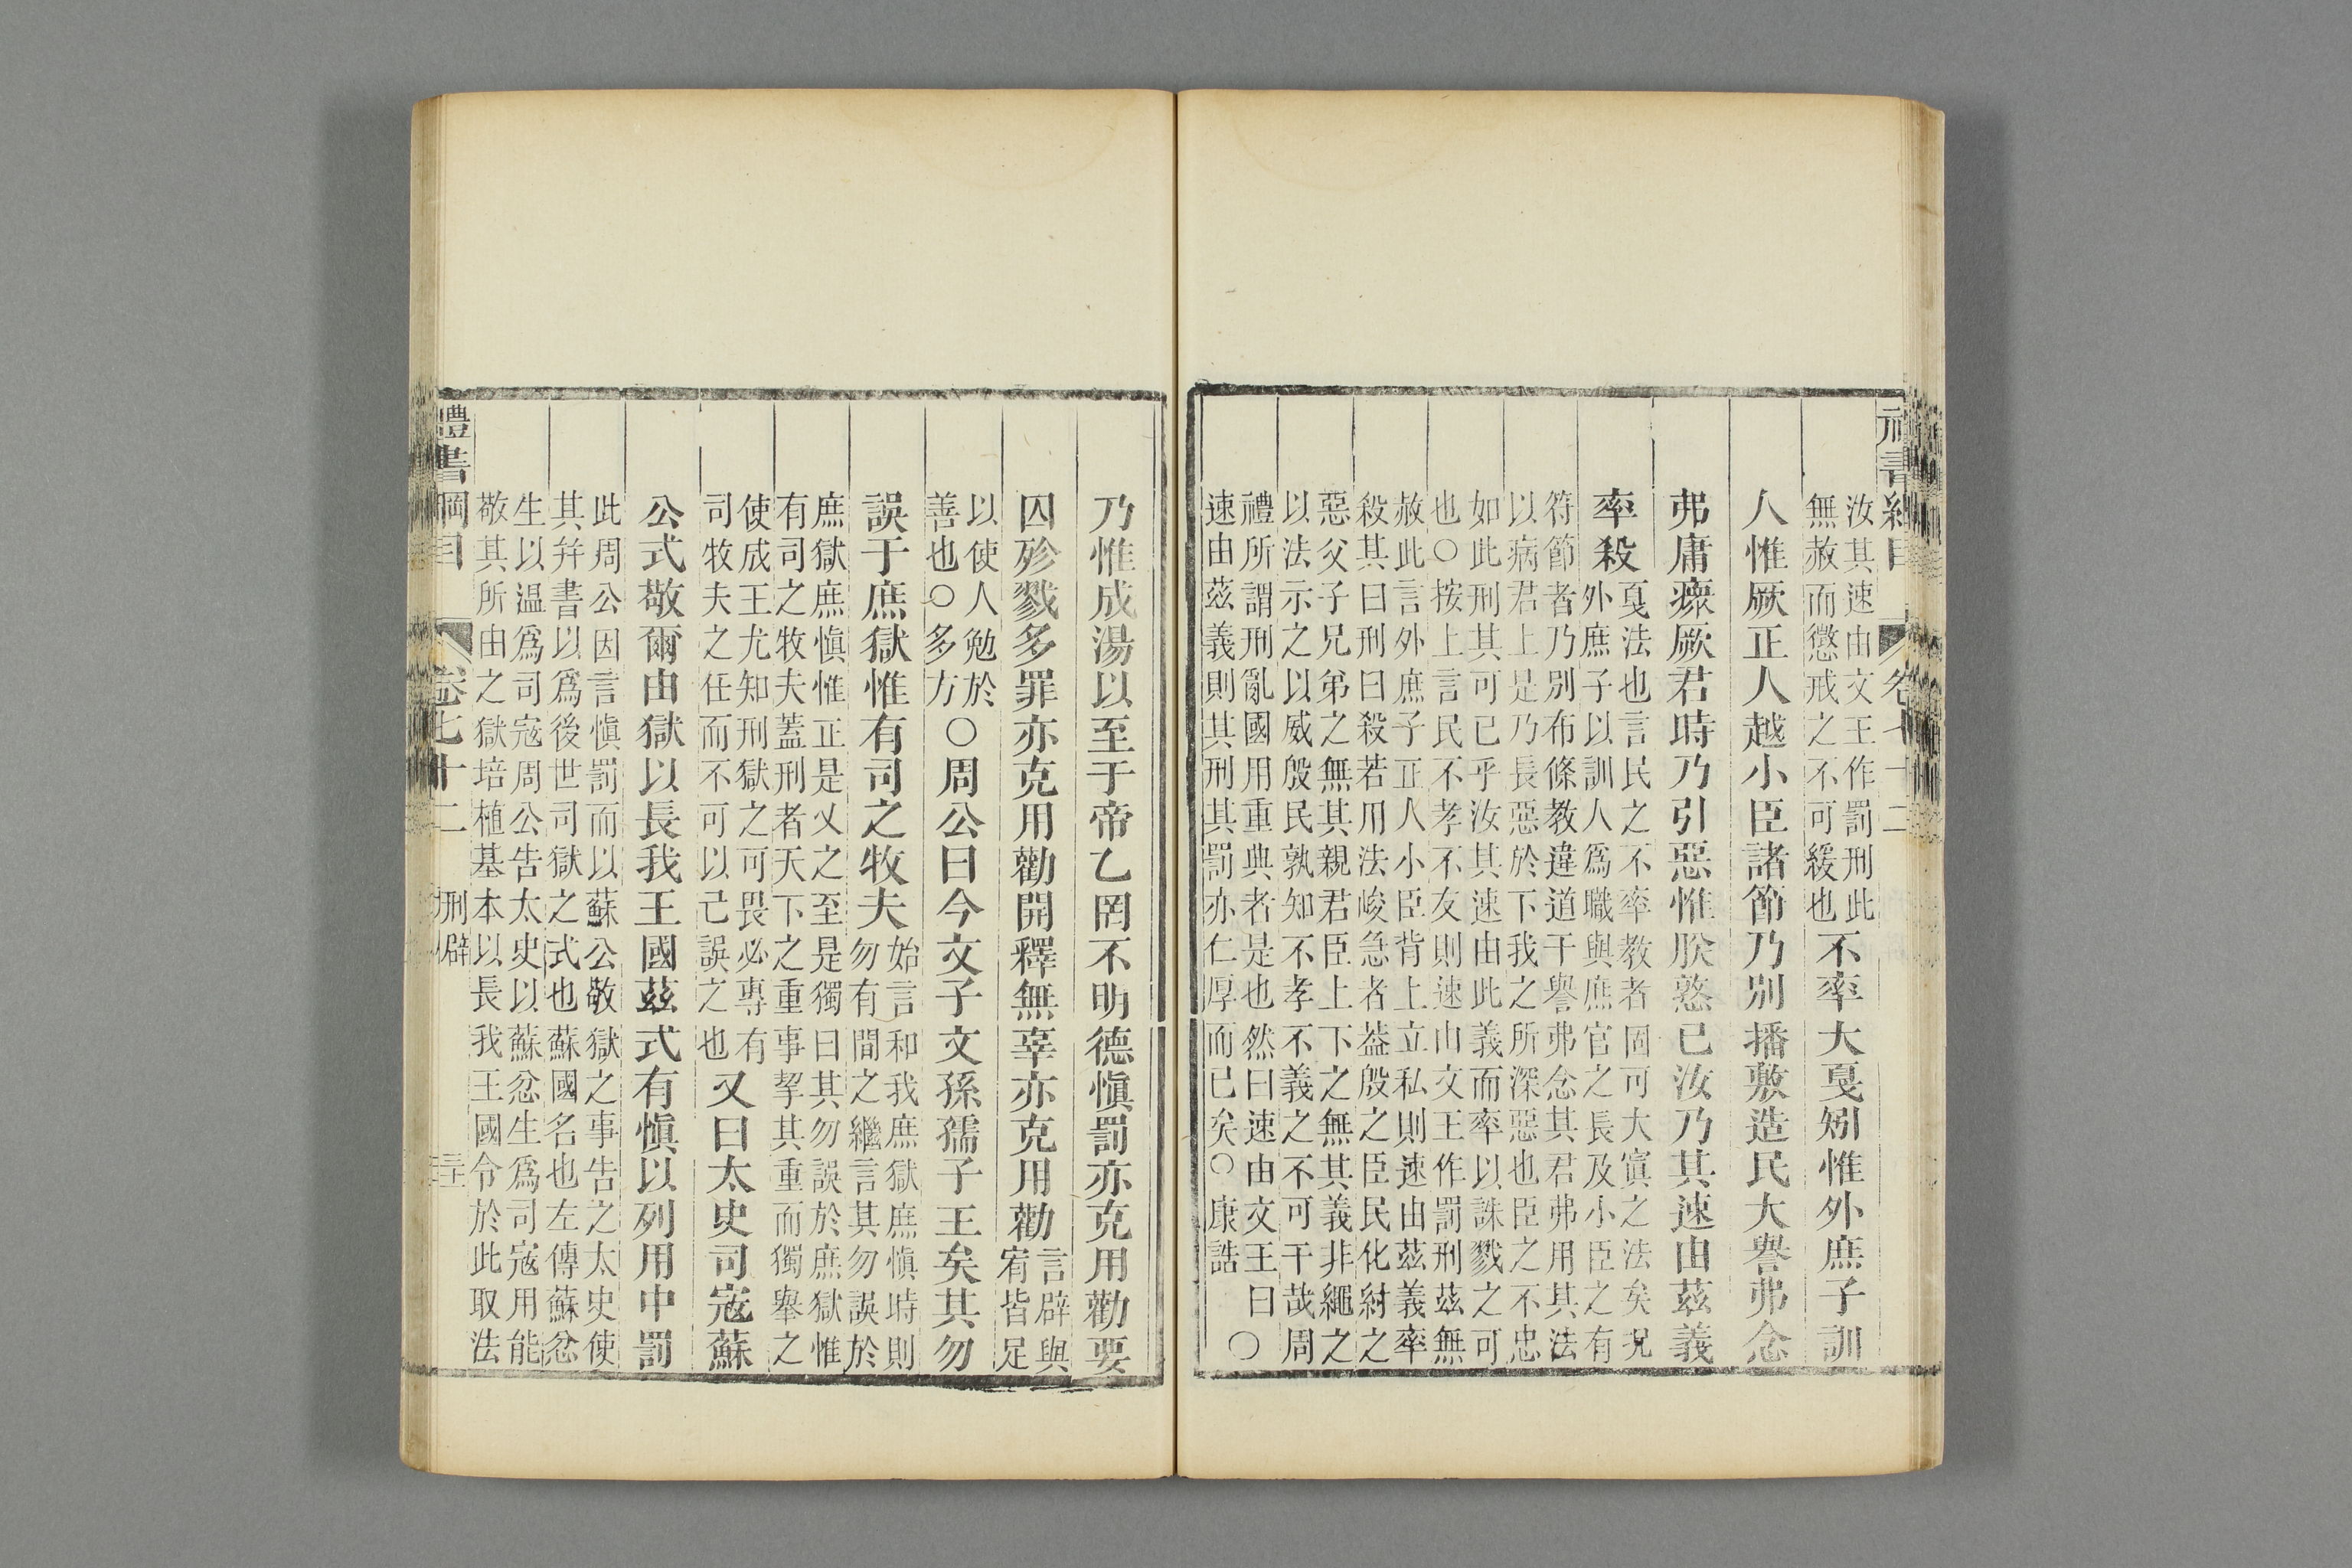 禮書綱目 卷七十二
汝其速由文王作罰刑此
無赦而懲戒之不可緩也
不率大戛矧惟外庶子訓
人惟厥正人越小臣諸節乃別播敷造民大譽弗念
弗庸瘝厥君時乃引惡惟朕憝已汝乃其速由茲義
率殺
戛法也言民之不率教者固可大寘之法矣况
外庶子以訓人爲職與庶官之長及小臣之有
符節者乃別布條教違道干譽弗念其君弗用其法
以病君上是乃長惡於下我之所深惡也臣之不忠
如此刑其可已乎汝其速由此義而率以誅戮之可
也○按上言民不孝不友則速由文王作罰刑茲無
赦此言外庶子正人小臣背上立私則速由茲義率
殺其曰刑曰殺若用法峻急者蓋殷之臣民化紂之
惡父子兄弟之無其親君臣上下之無其義非繩之
以法示之以威殷民孰知不孝不義之不可干哉周
禮所謂刑亂國用重典者是也然曰速由文王曰
速由茲義則其刑其罰亦仁厚而已矣○康誥
○
乃惟成湯以至于帝乙罔不明德愼罰亦克用勸要
囚殄戮多罪亦克用勸開釋無辜亦克用勸
言辟與
宥皆足
以使人勉於
善也○多方
○周公曰今文子文孫孺子王矣其勿
誤于庶獄惟有司之牧夫
始言和我庶獄庶愼時則
勿有間之繼言其勿誤於
庶獄庶愼惟正是乂之至是獨曰其勿誤於庶獄惟
有司之牧夫蓋刑者天下之重事挈其重而獨舉之
使成王尤知刑獄之可畏必專有
司牧夫之任而不可以己誤之也
又曰太史司寇蘇
公式敬爾由獄以長我王國茲式有愼以列用中罰
此周公因言愼罰而以蘇公敬獄之事告之太史使
其幷書以爲後世司獄之式也蘇國名也左傳蘇忿
生以温爲司寇周公告太史以蘇忿生爲司寇用能
敬其所由之獄培植基本以長我王國令於此取法
禮書綱目 卷七十二 刑辟